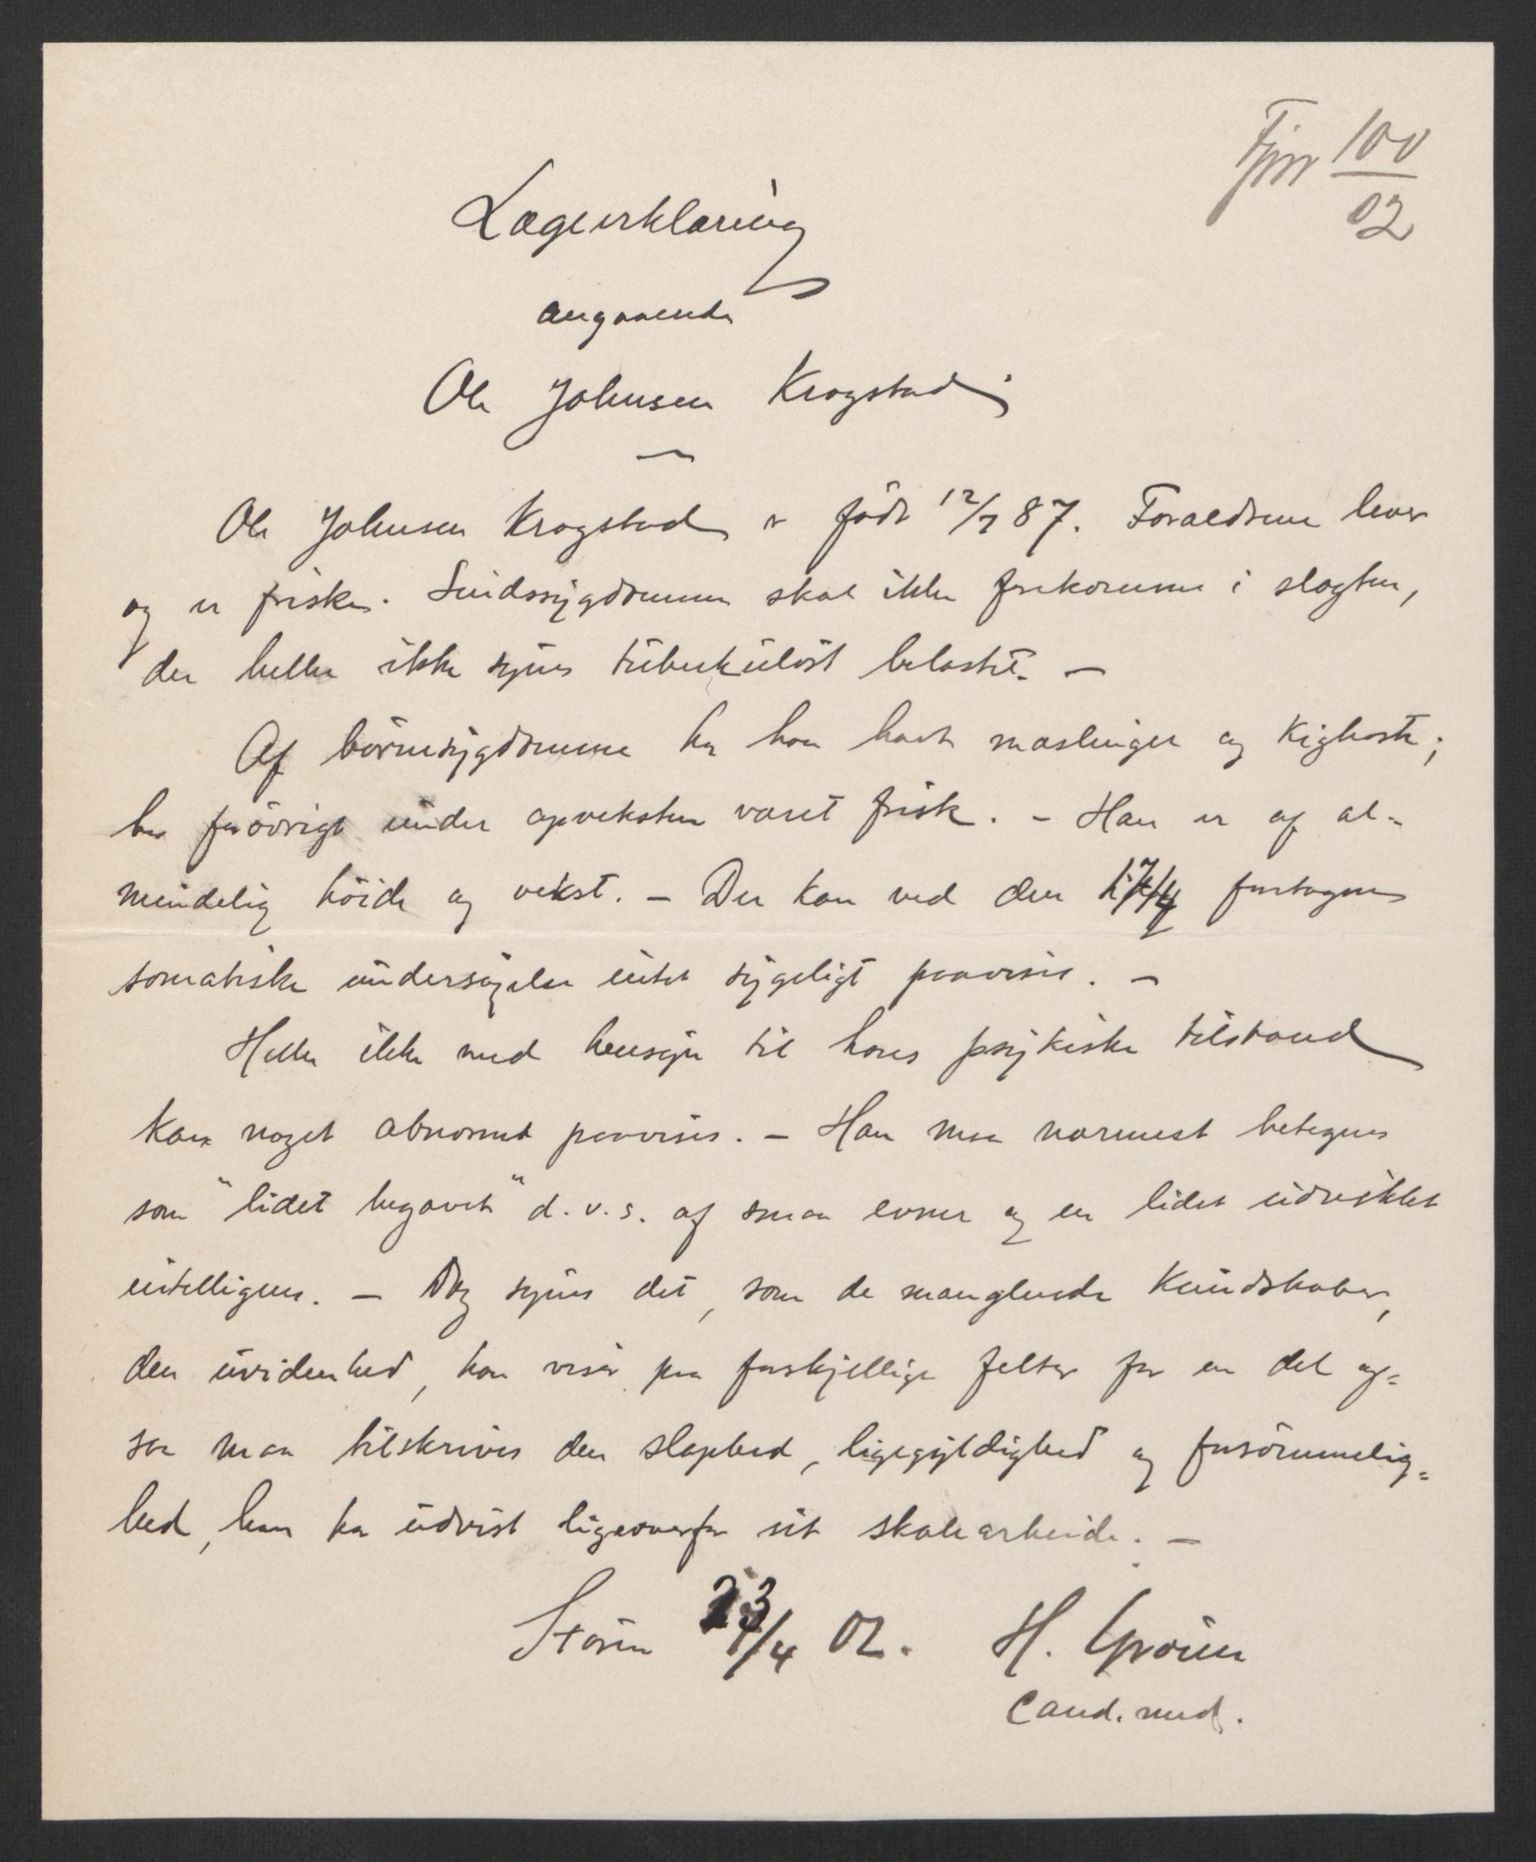 100
02
Lægeerklæring
angaaende
Ole Johnsen Krogstad
Ole Johnsen Krogstad er født 12/7 87. Forældrene lever
og er friske. Sindssygdomme skal ikke forekomme i slægten,
der heller ikke synes tuberkuløst belastet. –
Af børnesygdomme har han havt mæslinger og kighoste;
har forøvrigt under opveksten været frisk. – Han er af al-
mindelig høide og vekst. – Der kan ved den 17/4 foretagne
somatiske undersøgelse intet sygeligt paavises. –
Heller ikke med hensyn til hans psykiske tilstand
kan noget abnormt paavises. – Han maa nærmest betegnes
som "lidet begavet" d.v.s. af smaa evner og en lidet udviklet
intelligens. – Dog synes det, som de manglende kundskaber,
den uvidenhed, han viser paa forskjellige felter for en del og=
saa maa tilskrives den slaphed, ligegyldighed og forsømmelig=
hed, han har udvist ligeoverfor sit skolearbeide. –
Støren 23/4 02. H. Grøun
Cand. med.